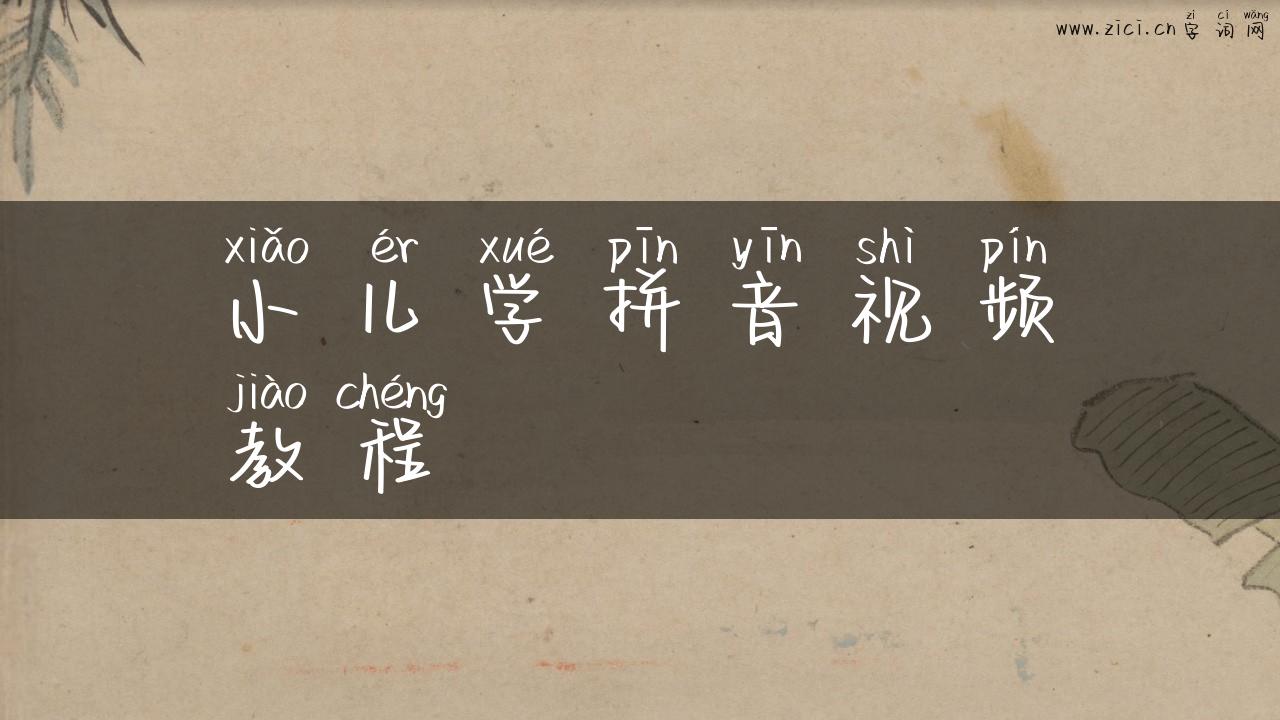 zì cí wǎng
www.zici.cn 字词网
xiǎo ér xué pīn yīn shì pín
小儿学拼音视频
jiào chéng
教程